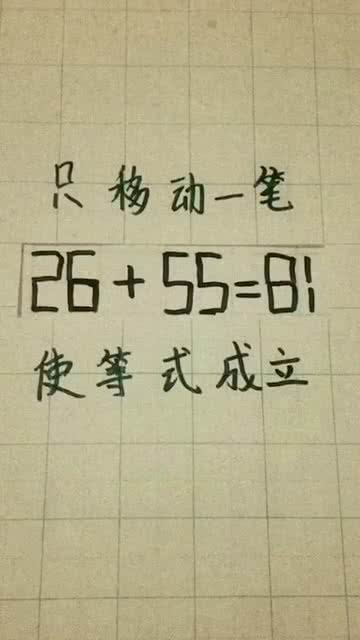 只移动一笔
26+55=81
使等式成立